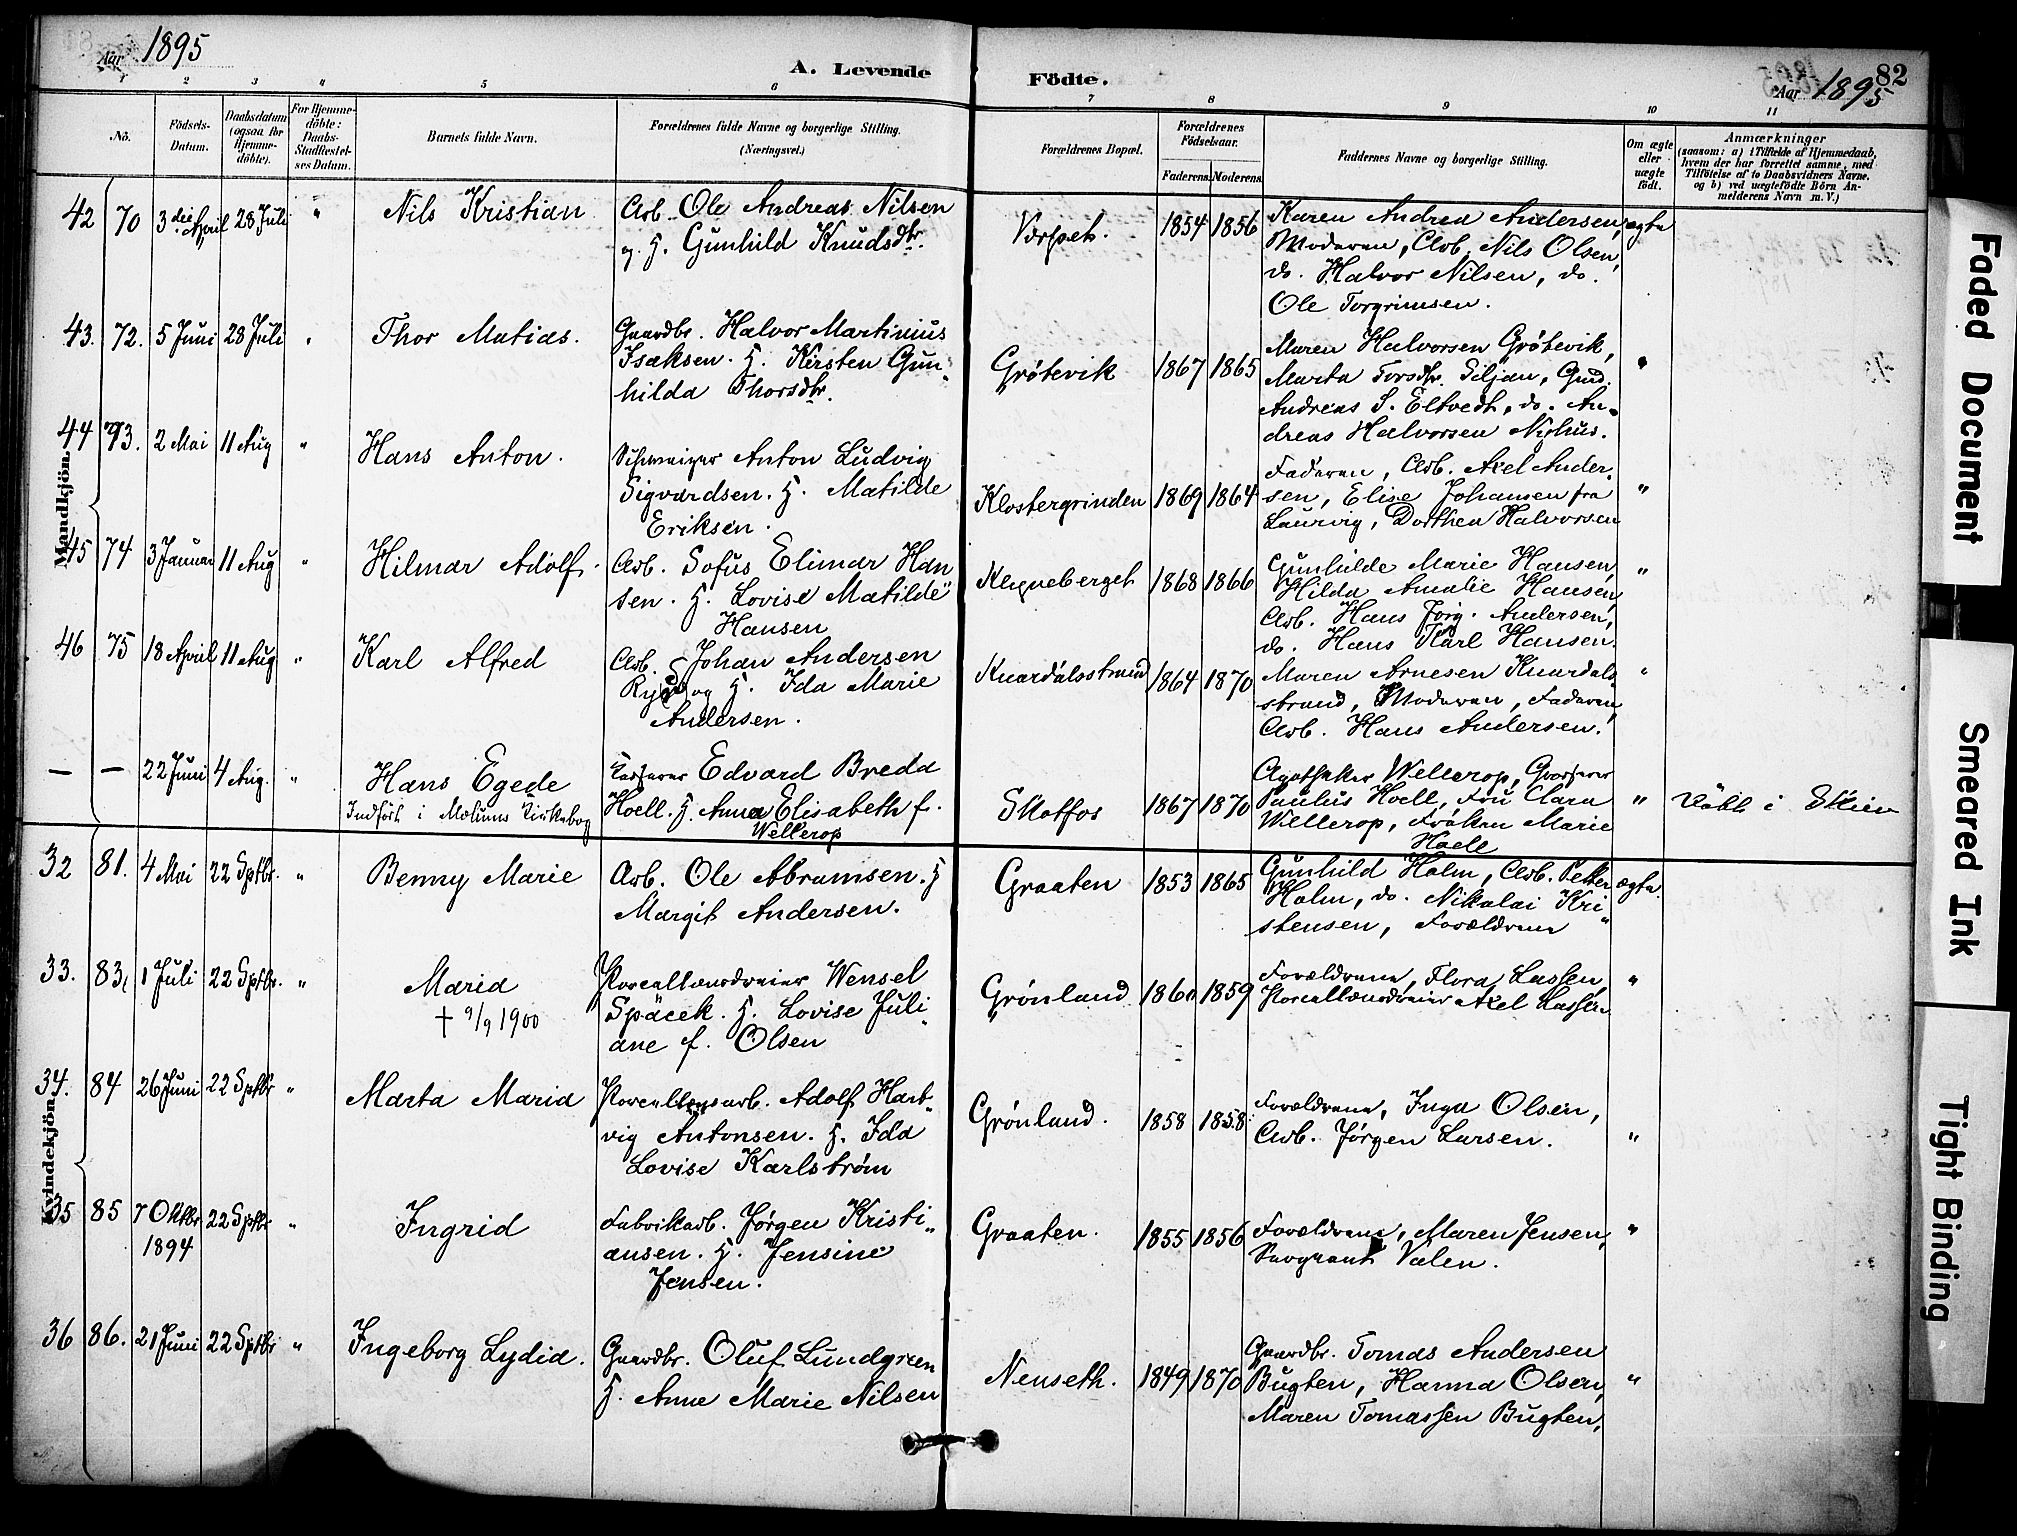 Aar 1895
A. Levende Födte.
Aar 1895
82
1 2 3 4 5 6 7 8 9 10 11
No.
Födsels-Datum.
Daabsdatum (ogsaa for Hjemme-döbte).
For Hjemme-döbte: Daabs-Stadfæstelses Datum.
Barnets fulde Navn.
Forældrenes fulde Navne og borgerlige Stilling. (Næringsvei.)
Forældrenes Bopæl.
Forældrenes Födselsaar.
Faderens. Moderens.
Faddernes Navne og borgerlige Stilling.
Om ægte eller uægte födt.
Anmærkninger
(saasom: a) i Tilfælde af Hjemmedaab,
hvem der har forrettet samme, med
Tilföielse af to Daabsvidners Navne.
og b) ved uægtefödte Börn An-
melderens Navn m. V.)
Mandkjön.
42 70 3die April 28 Juli " Nils Kristian
Arb. Ole Andreas Nilsen
og H. Gunhild Knudsdtr.
1854 1856
Karen Andrea Andersen, ægte
Moderen, Arb. Nils Olsen,
do. Halvor Nilsen, do.
Ole Torgrimsen.
43. 72. 5 Juni 28 Juli " Thor Matias.
Gaardbr. Halvor Martinius
Isaksen. H. Kirsten Gun-
hilda Thorsdtr.
Grøtevik 1867 1865
Maren Halvorsen Grøtevik, "
Marta Torsdtr. Siljan, Gmd.
Andreas S. Eltvedt, do. An-
dreas Halvorsen Nyhus.
44 93. 2 Mai 11 Aug " Hans Anton.
Schweizer Anton Ludvig
Sigvardsen. H. Matilde
Eriksen.
Klostergrinden 1869 1864
Faderen, Arb. Axel Ander-
sen, Elise Johansen fra "
Laurvig, Dorthea Halvorsen
45 74 3 Januar 11 Aug " Hilmar Adolf.
Arb. Sofus Elimar Han
sen. H. Lovise Matilde
Hansen
Klyneberget 1868 1866
Gunhilde Marie Hansen, "
Hilda Amalie Hansen,
Arb. Hans Jørg. Andersen,
do. Hans Karl Hansen.
46 75 18 April 11 Aug " Karl Alfred
Arb. Johan Andersen
og H. Ida Marie
Andersen.
Knardalsstrand 1864 1870
Maren Arnesen Knardals- "
strand, Moderen, Faderen,
Arb. Hans Andersen.
— — 22 Juni 4 Aug. " Hans Egede
Indført i Mælums Kirkebog
Kasserer Edvard Breda
Hoell. H. Anna Elisabeth f.
Wellerop
Skotfos 1867 1870
Apotheker Wellerop, Grosserer
Paulus Hoell, Fru Clara " Døbt i Skien
Wellerop, Frøken Marie
Hoell
Kvindekjön.
32 81. 4 Mai 22 Septbr. " Benny Marie
Arb. Ole Abramsen. H
Margit Andersen.
Graaten 1853 1865
Gunhild Holm, Arb. Petter ægte.
Holm, do. Nikolai Kri-
stensen, Forældrene
33. 83, 1 Juli 22 Septbr. " Maria
† 9/9 1900
Porcellænsdreier Wensel
Spácek. H. Lovise Juli-
ane f. Olsen
Grönland 1860 1859
Forældrene, Flora Lassen, "
Porcellænsdreier Axel Lassen
34. 84 26 Juni 22 Septbr " Marta Maria
Porcellænsarb. Adolf Hart-
vig Antonsen. H. Ida
Lovise Karlström
Grönland. 1858 1858.
Forældrene, Inga Olsen,
Arb. Jørgen Larsen. "
35 85 7 Oktbr 1894 22 Septbr " Ingrid
Fabrikarb. Jørgen Kristi-
ansen. H. Jensine
Jensen.
Graaten. 1855 1856
Forældrene, Maren Jensen, "
Valen.
36 86. 21 Juni 22 Septbr " Ingeborg Lydia.
Gaardbr. Oluf Lundgreen
H. Anne Marie Nilsen
Nenseth. 1849 1870
Gaardbr. Tomas Andersen
Bugten, Hanna Olsen, "
Maren Tomassen Bugten,
Faded Document
Smeared Ink
Tight Binding